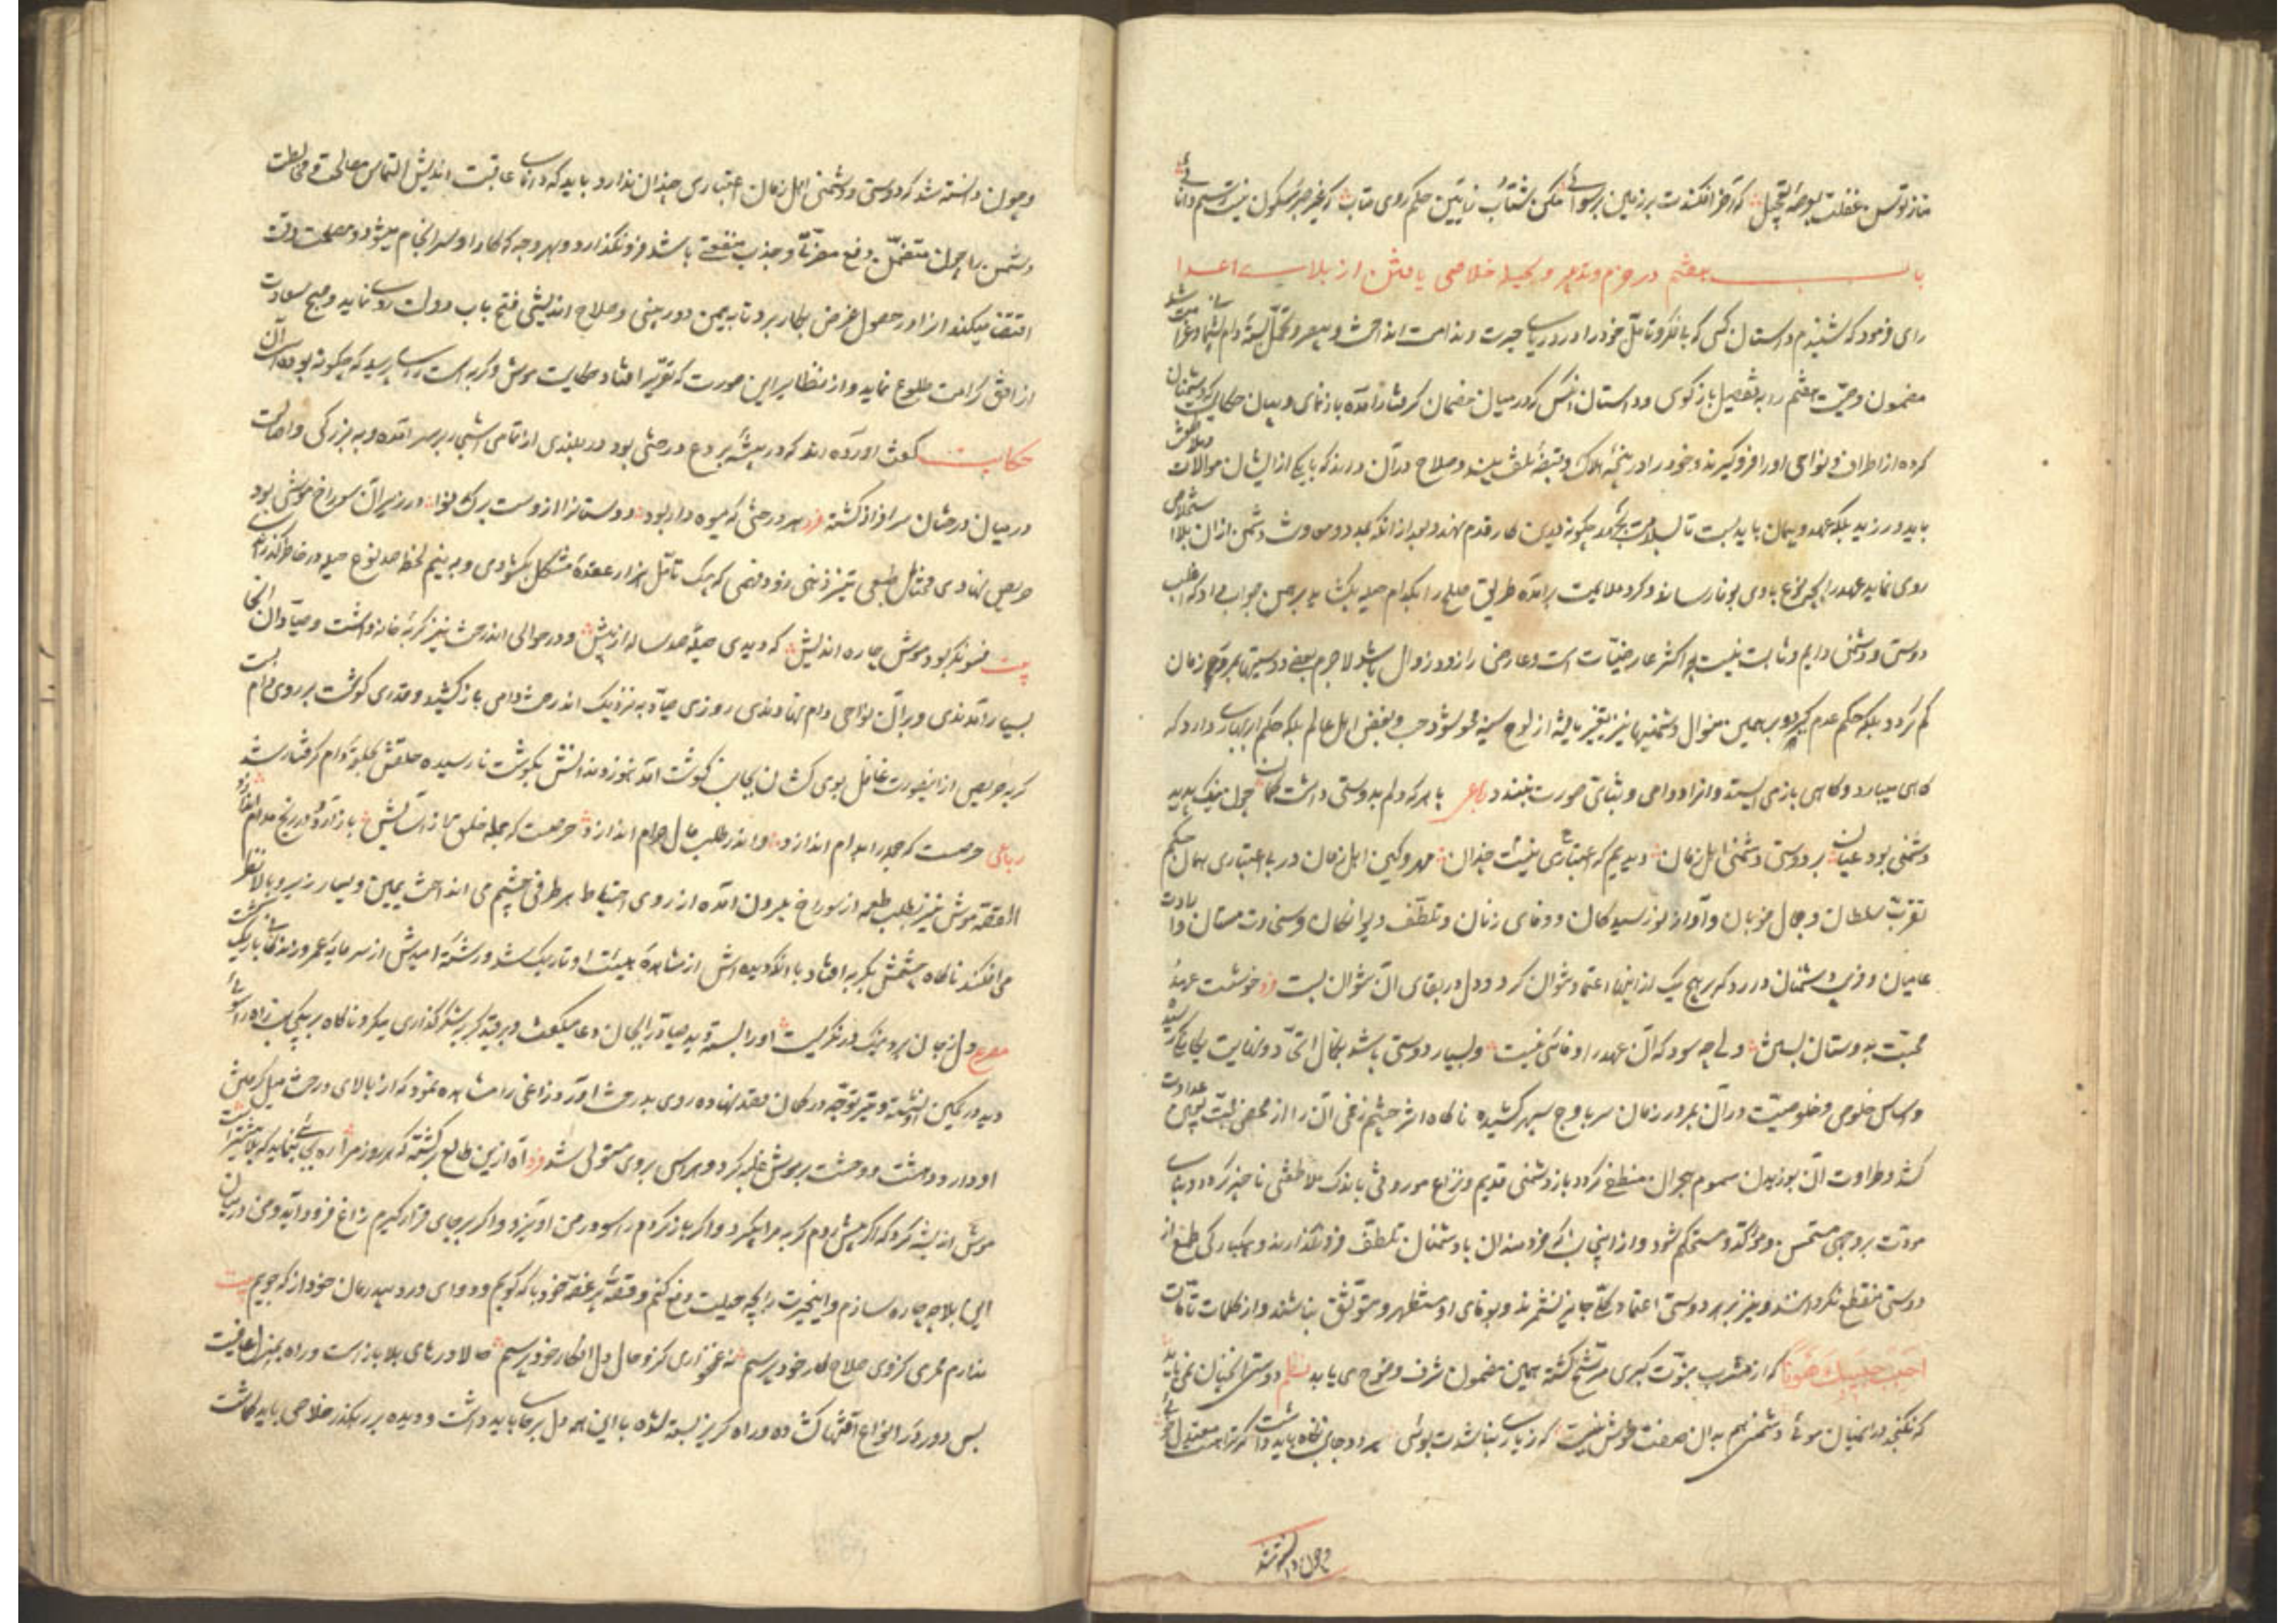 متاز توسن غفلت بعرصه تعجیل که آخر افکندت بر زمین برسوائی مکن شتاب ز آیین حکم روی متاب که غیر صبر سکون نیست رسم دانائی
باب هفتم در حزم و تدبیر و بحیله خلاصی یافتن از بلای اعدا
رای فرمود که شنیدم داستان کسی که بی فکر و تامل خود را در دریای حیرت و ندامت انداخت و بی صبر و تحمل بسته دام پشیمانی و غرامت شد
مضمون وصیت هفتم را به تفصیل بازگوی و داستان آنکس که در میان خصمان گرفتار آمده بازنمای و بیان حکایت که دشمنان
کرده از اطراف و نواحی او را فرو گیرند و خود را در پنجه هلاک و قبضه تلف بیند و صلاح در آن داند که با یکی از ایشان موالات و ملاطفت
باید ورزید بلکه عهد و پیمان باید بست تا بسلامت بجهد چگونه بدین کار قدم نهد و بعد از آنکه بمدد دشمن از آن بلا استخلاص
روی نماید عهد را بچه نوع با وی بوفا رساند و گرد ملایمت برآمده طریق صلح را بکدام حیله بگشاید برهمن جواب داد که اغلب
دوستی و دشمنی دایم و ثابت نیست چه اکثر عارضیات است و عارضی را زود زوال باشد لاجرم بعضی دوستیها بمرور زمان
کم گردد بلکه حکم عدم گیرد و بر همین منوال دشمنیها نیز بتغیر یافته از لوح سینه محو شود حب و بغض اهل عالم بلکه حکم ابر بهاری دارد که
گاهی میبارد و گاهی باز می ایستد و آنرا دوامی و ثباتی صورت نبندد رباعی با هر که دلم بدوستی داشت گمان چون نیک بدید
دشمنی بود عیان بر دوستی و دشمنی اهل زمان دیدیم که اعتباری نیست چندان مهر و کین اهل زمان در بی اعتباری همان حکم
تقرب سلطان و جمال خوبان و آواز نورسیدگان و وفای زنان و تلطف دیوانگان و سخاوت مستان و ارادت
عامیان و فریب دشمنان دارد که بر هیچ یک از اینها اعتماد نتوان کرد و دل در بقای آن نتوان بست فرد خوشست عهد
محبت بدوستان بستن ولی چه سود که آن عهد را وفائی نیست و بسیار دوستی باشد بکمال اتحاد و نهایت یگانگی رسیده
و اساس خلوص و خصوصیت در آن بمرور زمان سر باوج سپهر کشیده ناگاه اثر چشم زخمی آن را از محض محبت بعداوت
کشد و طراوت آن بوزیدن سموم هجران منطفی گردد باز دشمنی قدیم و نزاع موروثی باندک ملاطفتی ناچیز گردد و بنای
مودت بر وجهی مستحسن و مؤکد و مستحکم شود و از اینجاست که خردمندان با دشمنان تلطف فرو نگذارند و بیکبارگی طمع از
دوستی منقطع نگردانند و نیز بر هر دوستی اعتماد کلی جایز نشمرند و بوفای او مستظهر و متوثق نباشند و از کلمات تامات
احبب حبیبک هونا که از مشرب نبوت کبری مترشح گشته همین مضمون شرف وضوح می یابد نظم دوستی آنچنان نمی باید
که نگنجد در آنمیان موئی دشمنی هم بدان صفت خوش نیست که ز یاری نباشدت بوئی هر دو جانب نگاه باید داشت گرترا هست معتدل خوئی
و چون دانسته شد
و چون دانسته شد که دوستی و دشمنی اهل زمان اعتباری چندان ندارد باید که دانای عاقبت اندیش التماس مصالحه و مخالطت
دشمن را چون متضمن دفع مضرتی و جذب منفعتی باشد فرو نگذارد و بهر وجه که کار او سرانجام میشود و مصلحت وقت
اقتضا میکند از او در حصول غرض بکار برد تا به یمن دوربینی و صلاح اندیشی فتح باب دولت روی نماید و صبح سعادت
از افق کرامت طلوع نماید و از نظایر این صورت که تقریر افتاد حکایت موش و گربه است رای پرسید که چگونه بوده است آن
حکایت گفت آورده اند که در بیشه بردع درختی بود در بلندی از تمامی اشجار بر سر آمده و به بزرگی و اصالت
در میان درختان سرافراز گشته فرد هر درختی که میوه دار بود دوستانرا از اوست برگ و نوا در زیر آن سوراخ موشی بود
حریص نهادی محتال طبعی تیز ذهنی زود فهمی که بیک تامل هزار عقده مشکل بگشودی و به نیم لحظه صد نوع حیله در خاطر گذرانیدی
بیت فسونگر بود موش چاره اندیش که دیدی حیله صد ساله از پیش و در حوالی آن درخت نیز گربه خانه داشت و صیادان آنجا
بسیار آمدندی و در آن نواحی دام نهادندی روزی صیاد به نزدیک آن درخت دامی باز کشید و قدری گوشت بر روی دام بست
گربه حریص از اینصورت غافل ببوی کشان بجانب گوشت آمد هنوز دندانش بگوشت نارسیده حلقش بحلقه دام گرفتار شد
رباعی حرصست که جمله را بدام اندازد و اندر طلب مال حرام اندازد حرصست که جمله خلق را از آسایش باز آرد و در رنج مدام اندازد
القصه موش نیز بطلب طعمه از سوراخ بیرون آمده از روی احتیاط هر طرفی چشم می انداخت یمین و یسار زیر و بالا نظر
می افکند ناگاه چشمش بگربه افتاد با آنکه دیده اش از مشاهده هیئت او تاریک شد و رشته امیدش از سرمایه عمر و زندگانی باریک گشت
مصرع دل ز جان برد نیک درنگریست او را بسته قید صیاد دید بجان دعا میگفت و بر قید گربه شکرگذاری میکرد ناگاه بر یکجانب راه راسوئی
دید در کمین او نشسته و تیر توجه در کمان قصد نهاده روی بدرخت آورد زاغی را مشاهده نمود که از بالای درخت میل گرفتن
او دارد و دهشت و وحشت بر موش غلبه کرد و هراس بر وی مستولی شد فرد آه ازین طالع برگشته که هر روز مرا ره بجائی بنماید که بلا بیشتر است
موش اندیشه کرد که اگر پیش روم گربه مرا بگیرد و اگر باز گردم راسو در من آویزد و اگر بر جای قرار گیرم زاغ فرود آید و من در میان
این بلا چه چاره سازم و این حیرت را بچه حیلت دفع کنم و قصه پر غصه خود با که گویم و دوای درد بیدرمان خود از که جویم بیت
ندارم محرمی کز وی صلاح کار خود پرسم نه غمخواری کزو حال دل افگار خود پرسم حالا درهای بلا باز است و راه بمنزل عافیت
بس دور و در انواع آفتها گشاده و راه گریز بسته شده با این همه دل بر جا باید داشت و دیده بر رهگذر خلاصی باید گماشت